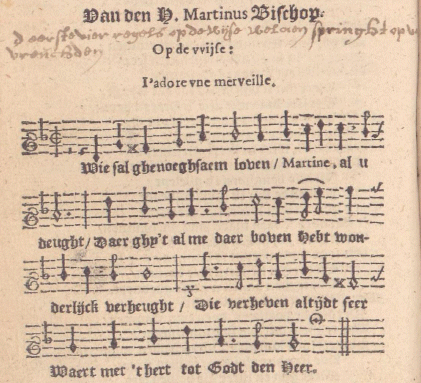 Van den H. Martinus Bisschop.
d eerste vier regels op de wijse wel aen springht op
vreuchden
Op de vvijse:
I'adore vne merveille.
Wie sal ghenoeghsaem loven / Martine, al u
deught / Daer ghy't al me daer boven Hebt won-
derlijck verheught / Die verheven altijdt seer
Waert met 't hert tot Godt den Heer.